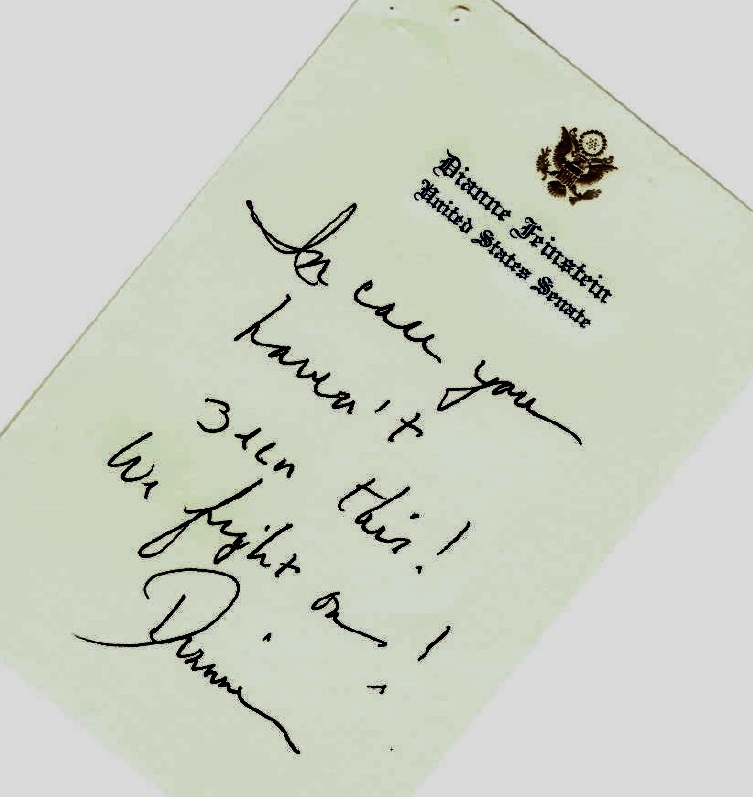 Dianne Feinstein
United States Senate
In case you
haven't
seen this!
We fight on!
Dianne